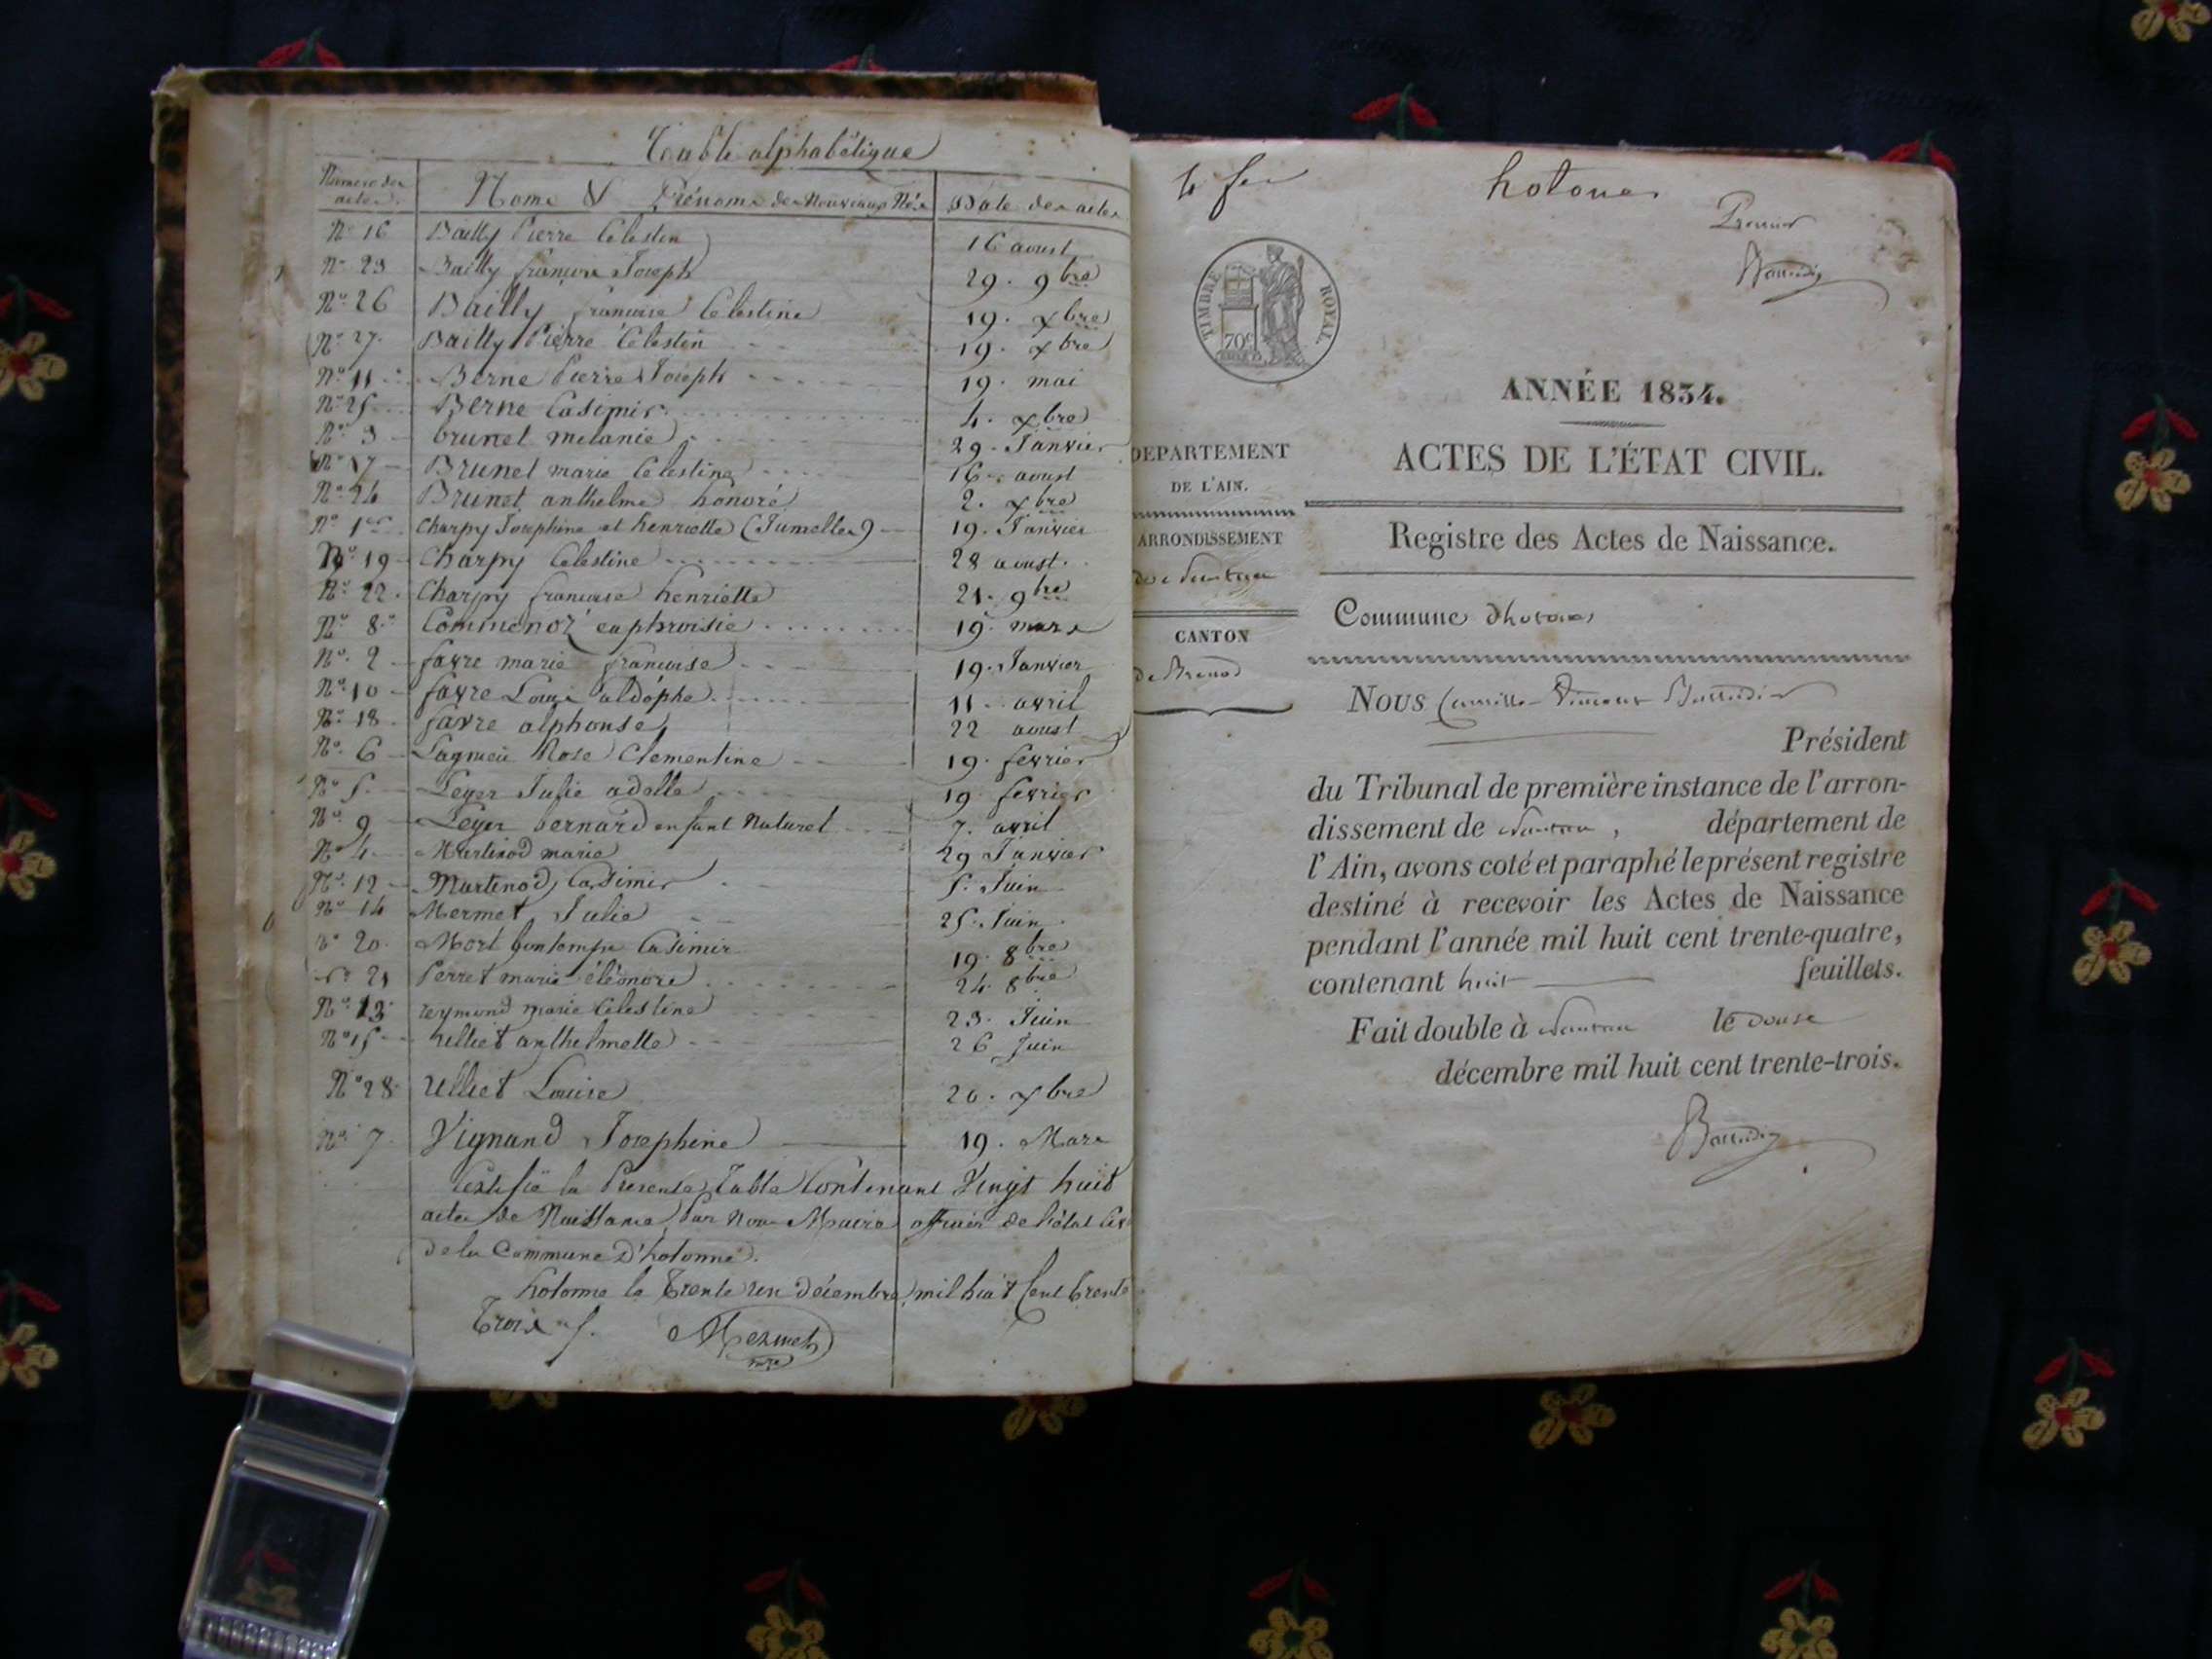 Table alphabétique
Numero des actes. Noms & Prénoms des Nouveaux Nés Date des actes
No 16 Bailly Pierre Celestin 16 aoust
No 23 Bailly françois Joseph 29. 9bre
No 26 Bailly francoise Celestine 19. xbre
No 27. Bailly Pierre Celestin 19. xbre
No 11 Berne Pierre Joseph 19. mai
No 25 Berne Casimir 4. xbre
No 3 brunet melanie 29. Janvier
No 17 Brunet marie Celestine 16. aoust
No 24 Brunet anthelme honoré 2. xbre
No 1er Charpy Josephine et henriette (Jumelles) 19. Janvier
No 19 Charpy Celestine 28 aoust.
No 22. Charpy francoise henriette 21. 9bre
No 8. euphroisie 19. mars
No 2 favre marie francoise 19. Janvier
No 10 favre Louis aldophe 11. avril
No 18. favre alphonse 22 aoust
No 6 Lagnieu Rose Clementine 19. fevrier
No 5. Leyer Julie adelle 19 fevrier
No 9 Leyer bernard enfant Naturel 7. avril
No 4 Martinod marie 29 Janvier
No 12 Martinod Casimir 5. Juin
No 14 Mermet Julie 25. Juin.
No 20. Mort bontemps Casimir 19. 8bre
No 21 Perret marie éléonore 24. 8bre
No 13 reymond marie Celestine 23. Juin
No 15 anthelmette 26 Juin
No 28 Ulliet Louise 20. xbre
No 7. Vignand Josephine 19. Mars
Certifié la Presente Table Contenant Vingt huit
actes de Naissance, Par Nous Maire officier de l'état Civ
de la Commune D'hotonne.
hotonne le Trente un décembre mil huit Cent trente
Trois
Mermet
mre
hotones
Premier
Baudin
TIMBRE ROYAL
70c
ANNÉE 1834.
ACTES DE L'ÉTAT CIVIL.
DEPARTEMENT
DE L'AIN.
ARRONDISSEMENT
de Nantua
CANTON
de Brenod
Registre des Actes de Naissance.
Commune d'hotones
NOUS Vincent
Président
du Tribunal de première instance de l'arron-
dissement de Nantua, département de
l'Ain, avons coté et paraphé le présent registre
destiné à recevoir les Actes de Naissance
pendant l'année mil huit cent trente-quatre,
contenant huit feuillets.
Fait double à Nantua le douse
décembre mil huit cent trente-trois.